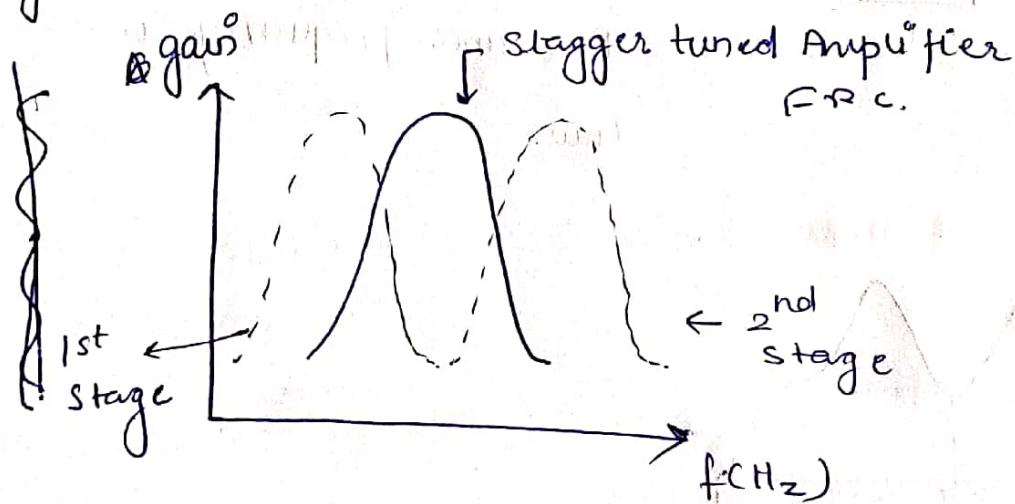 gain
stagger tuned Amplifier
F R C.
1st
stage
← 2nd
stage
f(Hz)